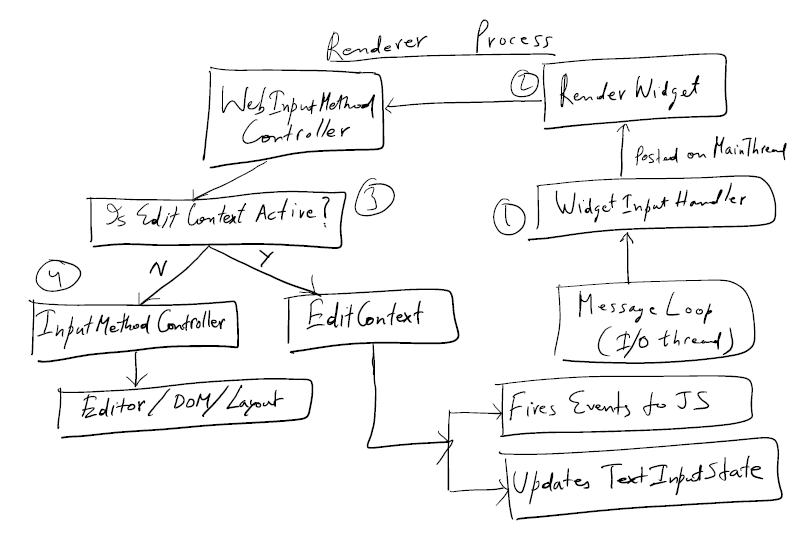 Renderer Process
② RenderWidget
WebInputMethod
Controller
Posted on MainThread
③ Is Edit Context Active?
① WidgetInputHandler
N
Y
④
InputMethodController
EditContext
Message Loop
(I/O thread)
Editor/DOM/Layout
Fires Events to JS
Updates TextInputState